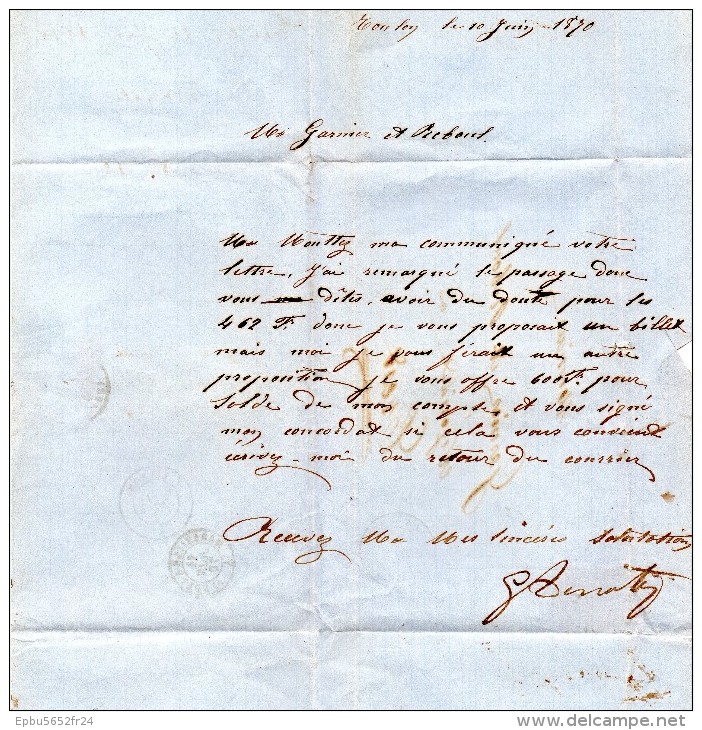 Toulon le 10 Juin 1870
Mrs Garnier et Reboul
Mr Mouttez ma communiqué votre
lettre, J'ai remarqué le passage donc
vous dîtes, avoir du doute pour les
462 F. donc je vous proposait un billet
mais moi je vous ferait un autre
proposition je vous offre 600 F. pour
solde de mon compte, et vous signé
mon concordat si cela vous convient
écrivez-moi du retour du courrier
Recevez Mr Mes sincères Salutations
Epbu5652fr24
delcampe.net